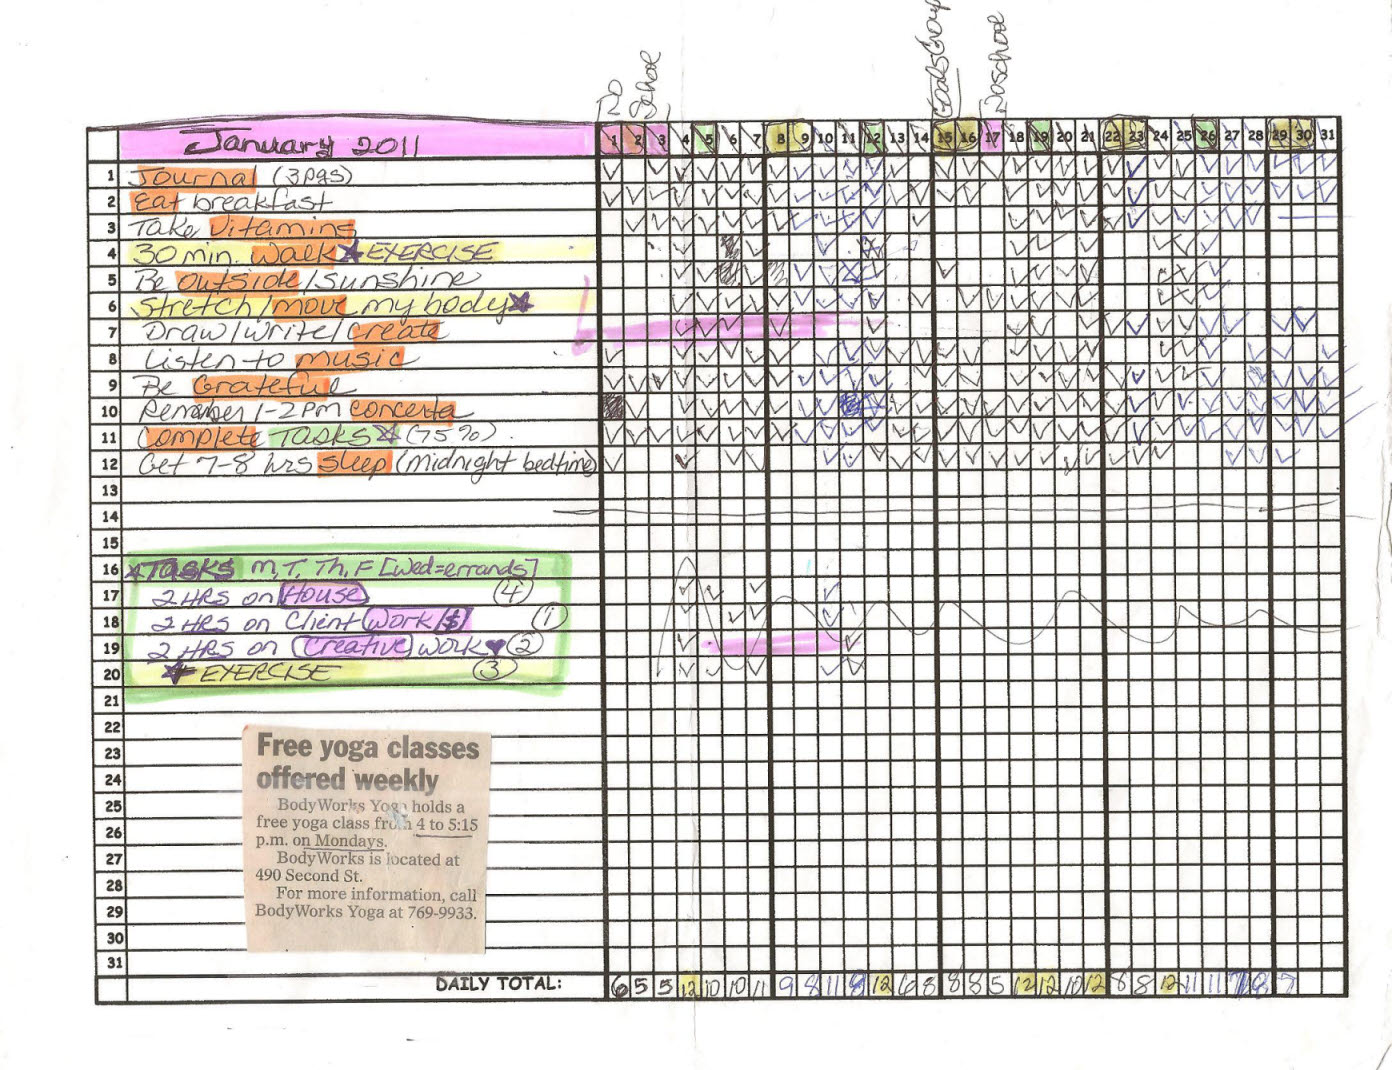 No School
Goals Group
No school
January 2011
1 2 3 4 5 6 7 8 9 10 11 12 13 14 15 16 17 18 19 20 21 22 23 24 25 26 27 28 29 30 31
1 Journal (3pgs)
2 Eat breakfast
3 Take Vitamins
4 30 min. Walk ★ EXERCISE
5 Be outside/sunshine
6 Stretch/move my body ★
7 Draw/write/create
8 Listen to music
9 Be Grateful
10 Remember 1-2pm concerta
11 Complete TASKS ★ (75%)
12 Get 7-8 hrs sleep (midnight bedtime)
13
14
15
16 ★Tasks M, T, Th, F [Wed=errands]
17 2 HRS on House (4)
18 2 HRS on Client Work/$ (1)
19 2 HRS on Creative work ♥ (2)
20 ★ EXERCISE (3)
21
22
23
24
25
26
27
28
29
30
31
Free yoga classes
offered weekly
BodyWorks Yoga holds a
free yoga class from 4 to 5:15
p.m. on Mondays.
BodyWorks is located at
490 Second St.
For more information, call
BodyWorks Yoga at 769-9933.
DAILY TOTAL: 6 5 5 12 10 10 11 9 8 11 9 12 6 8 8 8 5 12 12 10 12 8 8 12 11 11 7 8 7